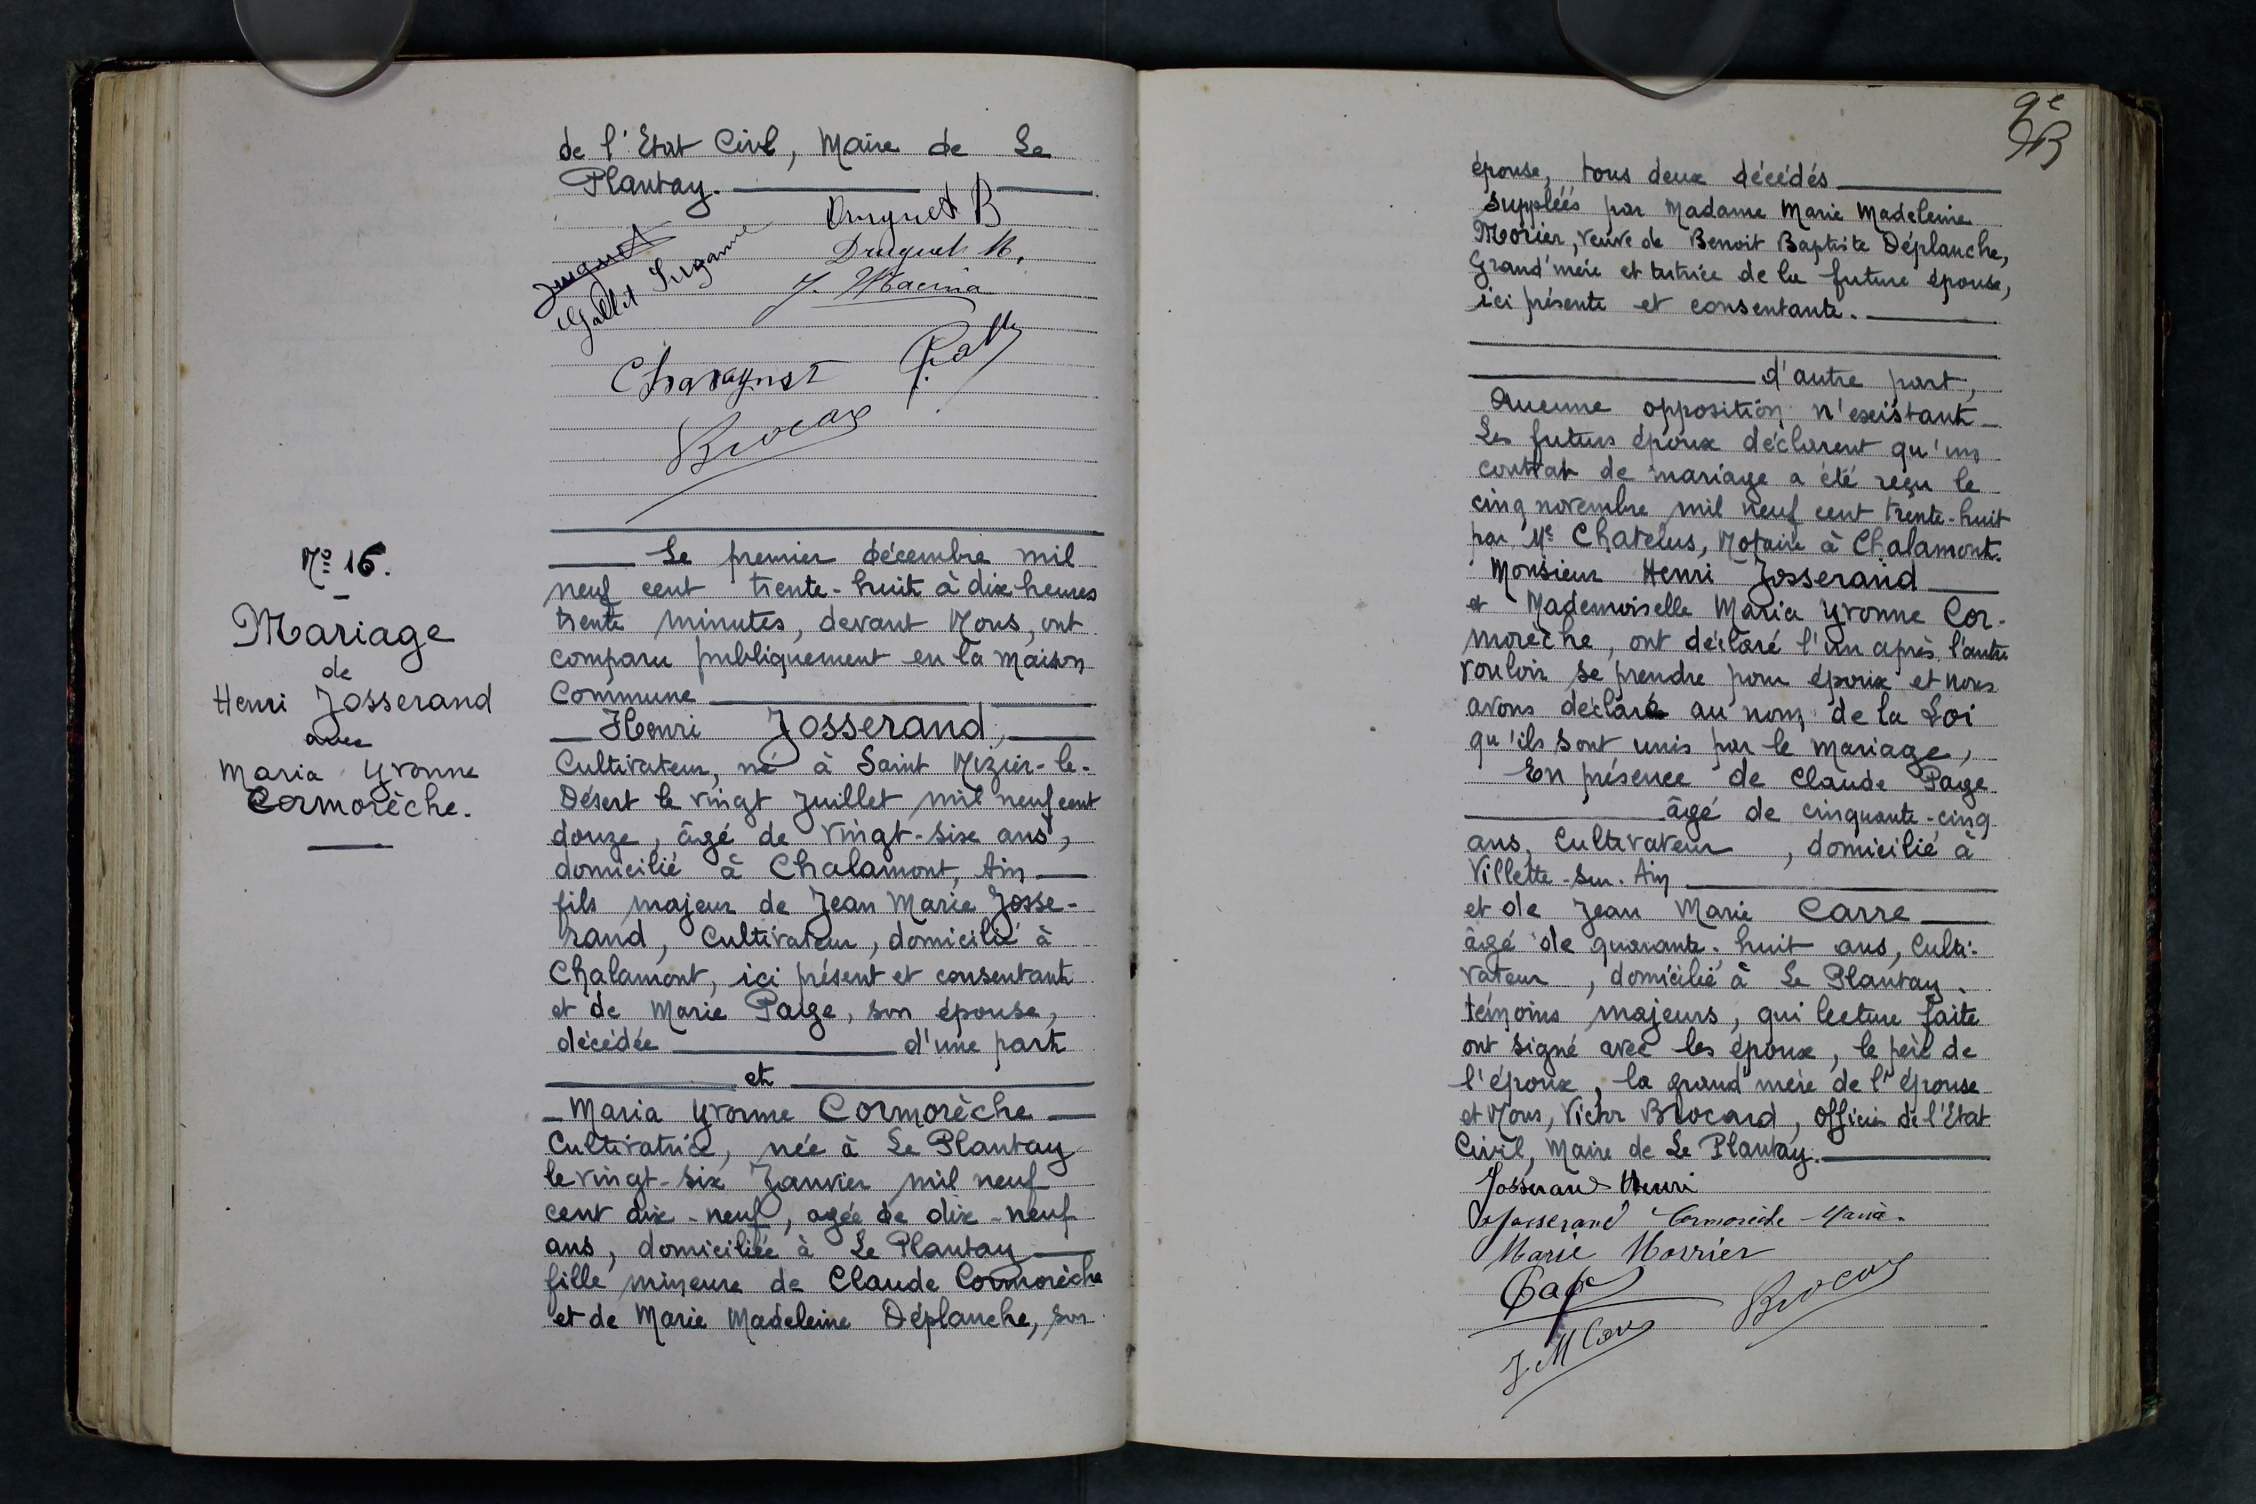 de l'Etat Civil, Maire de Le
Plantay.
Druguet B
Druguet
Gallet Suzanne
Druguet M.
Charagnat
Brocard
Nº 16.
Mariage
de
Henri Josserand
avec
Maria Yvonne
Cormorèche.
Le premier décembre mil
neuf cent trente-huit à dix heures
trente minutes, devant Nous, ont
comparu publiquement en la maison
Commune
Henri Josserand,
Cultivateur, né à Saint Nizier-le-
Désert le vingt Juillet mil neuf cent
douze, âgé de vingt-six ans,
domicilié à Chalamont, Ain
fils majeur de Jean Marie Josse-
rand, Cultivateur, domicilié à
Chalamont, ici présent et consentant
et de Marie Page, son épouse,
décédée d'une part
et
Maria Yvonne Cormorèche
Cultivatrice, née à Le Plantay
le vingt-six Janvier mil neuf
cent dix-neuf, agée de dix-neuf
ans, domiciliée à Le Plantay
fille mineure de Claude Cormorèche
et de Marie Madeleine Déplanche, son
9e
épouse, tous deux décédés
suppléés par Madame Marie Madeleine
Morier, veuve de Benoit Baptiste Déplanche,
Grand'mère et tutrice de la future épouse,
ici présente et consentante.
d'autre part,
Aucune opposition n'existant
Les futurs époux déclarent qu'un
contrat de mariage a été reçu le
cinq novembre mil neuf cent trente-huit
par Me Chatelus, Notaire à Chalamont.
Monsieur Henri Josserand
et Mademoiselle Maria Yvonne Cor-
morèche, ont déclaré l'un après l'autre
vouloir se prendre pour époux et nous
avons déclaré au nom de la Loi
qu'ils sont unis par le mariage,
En présence de Claude Page
âgé de cinquante-cinq
ans, Cultivateur, domicilié à
Villette-sur-Ain
et de Jean Marie Carre
âgé de quarante-huit ans, Culti-
vateur, domicilié à Le Plantay.
témoins majeurs, qui lecture faite
ont signé avec les époux, le père de
l'époux, la grand'mère de l'épouse
et Nous, Victor Brocard, Officier de l'Etat
Civil, Maire de Le Plantay.
Josserand Henri
Josserand Cormorèche Maria.
Marie Morrier
Page
Brocard
J M Carre